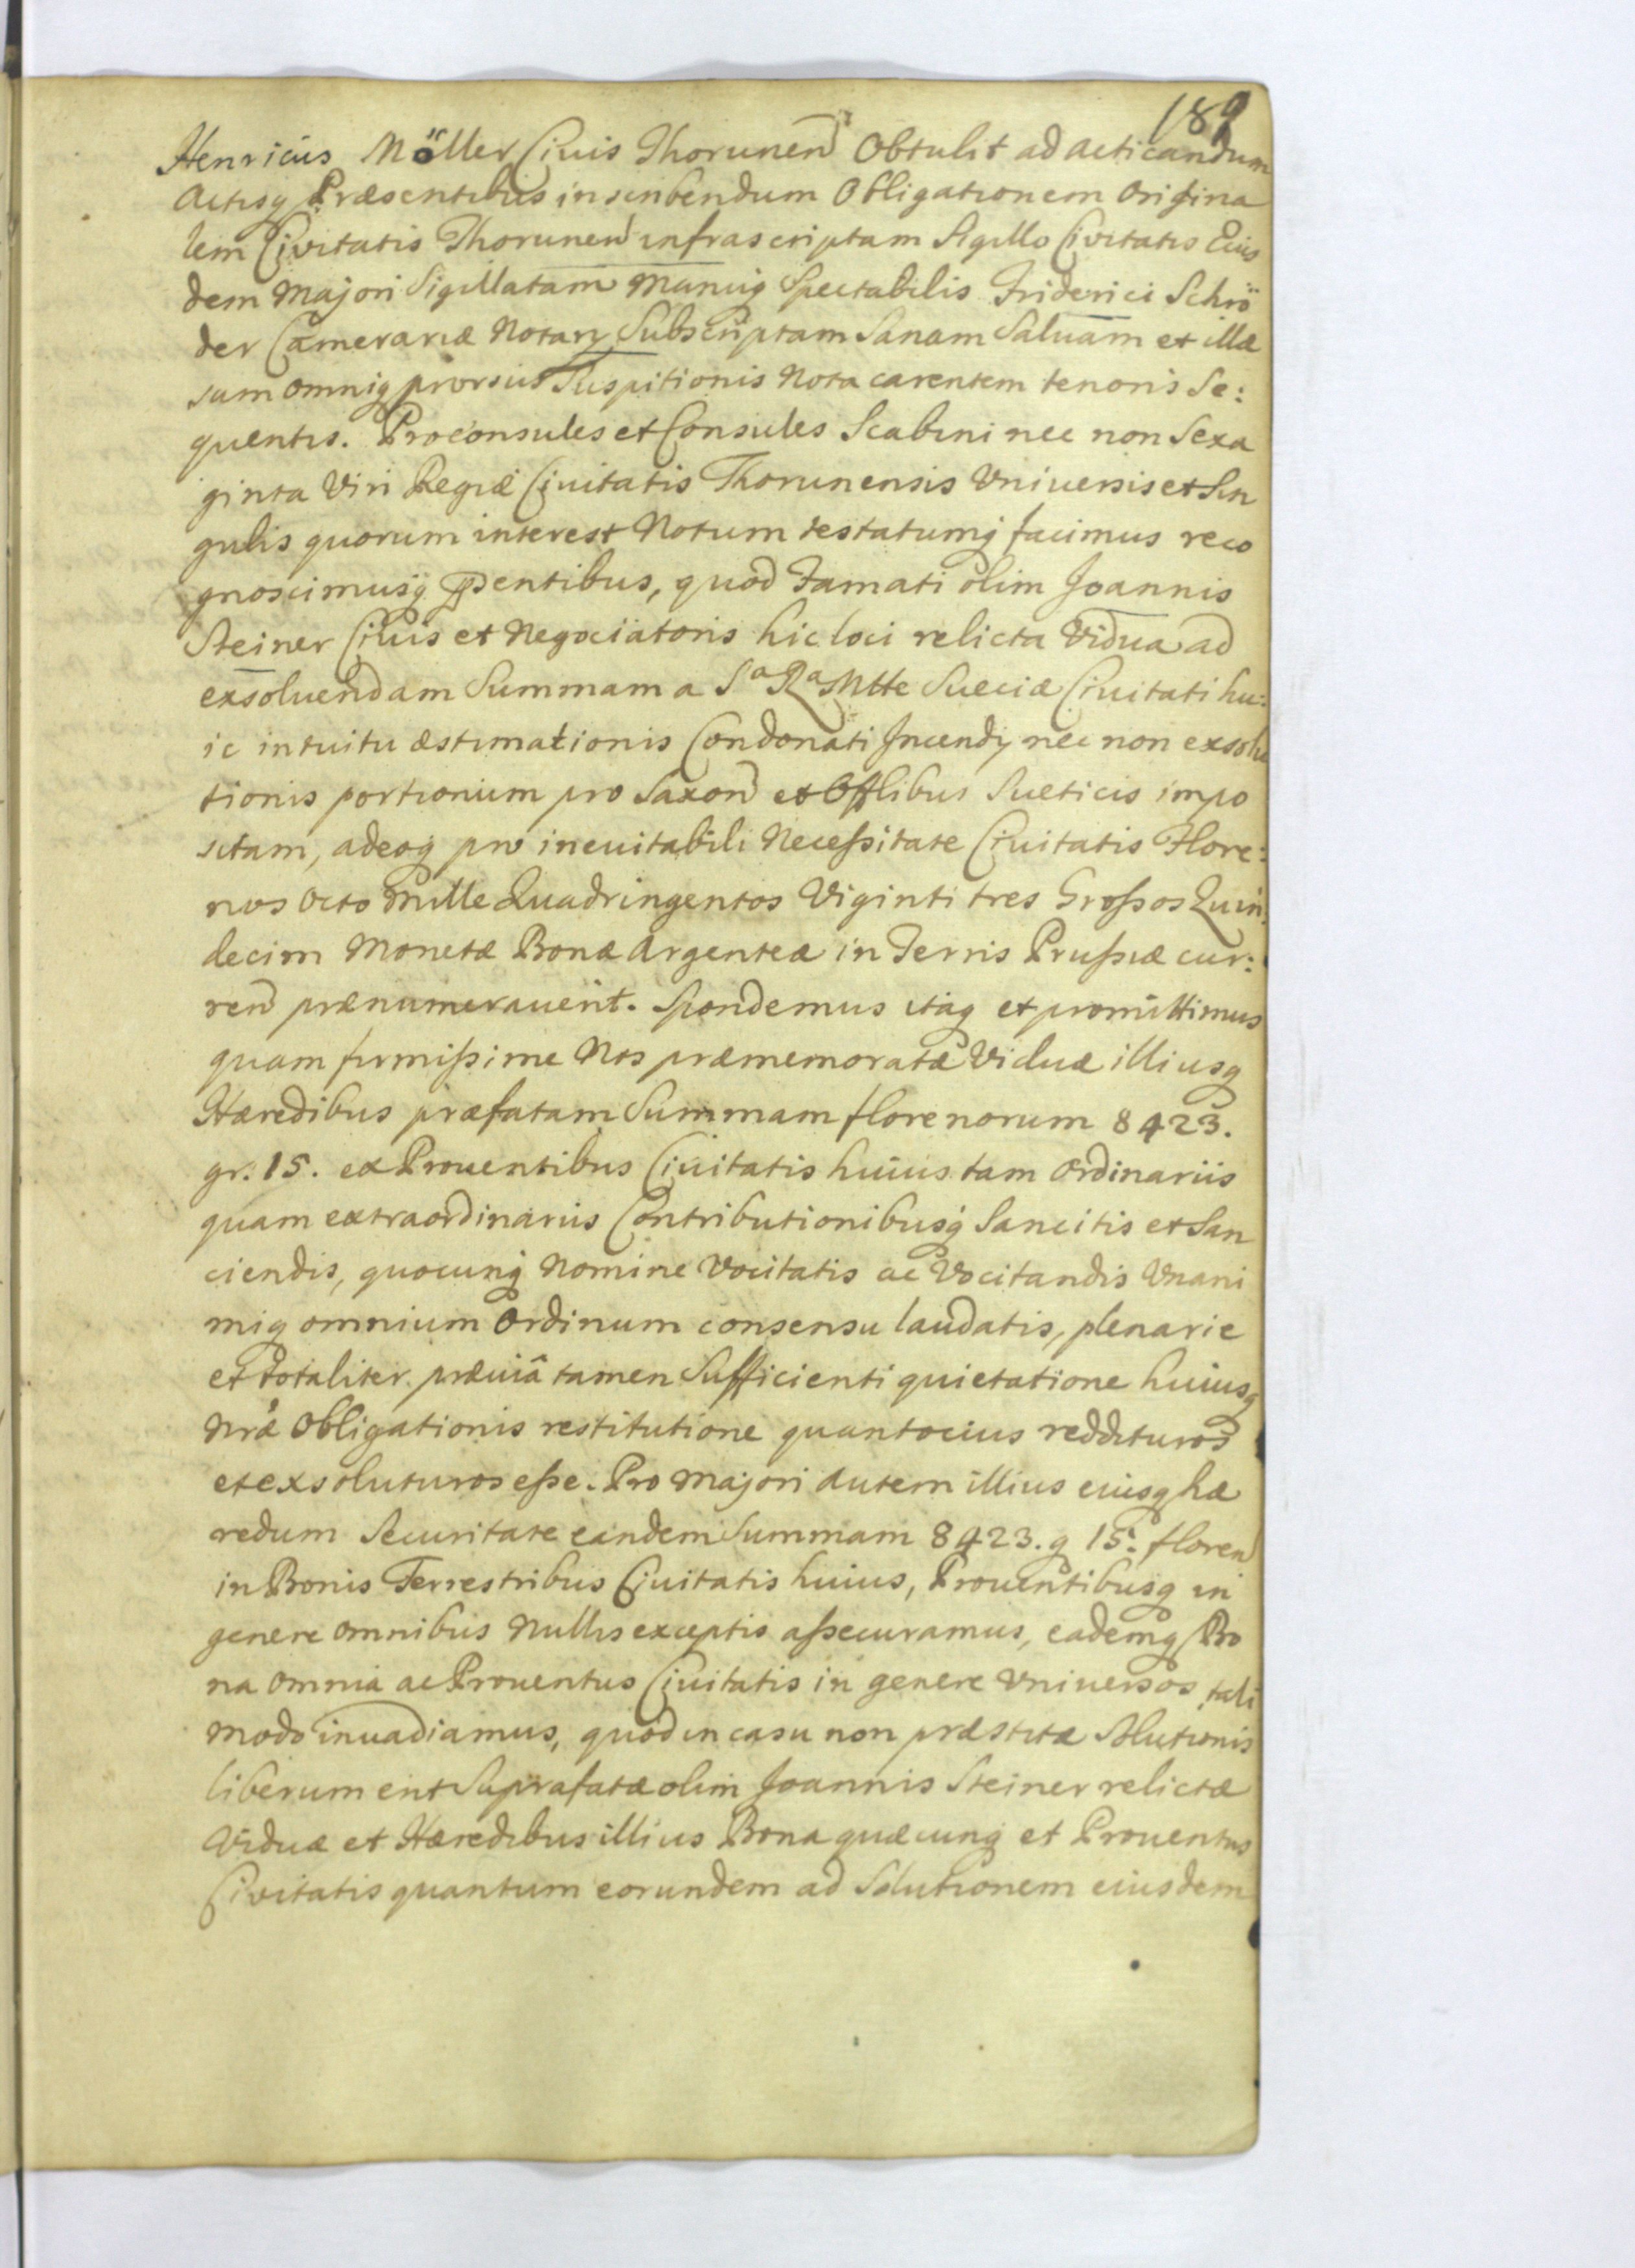 189
Henricus Möller Civis Thorunen Obtulit ad acticandum
Actisq Præsentibus inscribendum Obligationem Origina
lem Civitatis Thorunen infrascriptam Sigillo Civitatis Eius
dem Majori Sigillatam Manuq Spectabilis Friderici Schrö
der Camerariæ Notarij Subscriptam Sanam Saluam et illæ
sam omniq prorsus Suspitionis Nota carentem tenoris Se:
quentis. Proconsules et Consules Scabini nec non Sexa
ginta Viri Regiæ Civitatis Thorunensis Vniuersis et Sin
gulis quorum interest Notum testatumq facimus reco
gnoscimusq pntibus, quod Famati olim Joannis
Steiner Ciuis et Negociatoris hic loci relicta Vidua ad
exsoluendam Summam a Sa Ra Mtte Sueciæ Ciuitati hu:
ic intuitu æstimationis Condonati Incendij nec non exsolu
tionis portionum pro Saxon et Offlibus Sueticis impo
sitam, adeoq pro ineuitabili Necessitate Ciuitatis Flore:
nos Octo Mille Quadringentos Viginti tres Grossos Quin:
decim Monetæ Bonæ Argenteæ in Terris Prussiæ cur:
ren prænumerauerit. Spondemus itaq et promittimus
quam firmissime Nos præmemoratæ Viduæ illiusq
Hæredibus præfatam Summam florenorum 8423.
gr. 15. ex Prouentibus Ciuitatis huius tam Ordinariis
quam extraordinariis Contributionibusq Sancitis et San
ciendis, quocunq Nomine Vocitatis ac Vocitandis Vnani
miq omnium Ordinum consensu laudatis, plenarie
et totaliter præuiâ tamen Sufficienti quietatione huiusq
Nræ Obligationis restitutione quantocius reddituros
et exsoluturos esse. Pro Majori autem illius eiusq hæ
redum Securitate eandem Summam 8423. g 15. floren
in Bonis Terrestribus Ciuitatis huius, Prouentibusq in
genere omnibus Nullis exceptis assecuramus, eademq Bo
na omnia ac Prouentus Ciuitatis in genere Vniuersos tali
modo inuadiamus, quod in casu non præstitæ Solutionis
liberum erit Suprafatæ olim Joannis Steiner relictæ
Viduæ et Hæredibus illius Bona quæcunq et Prouentus
Civitatis quantum eorundem ad Solutionem eiusdem